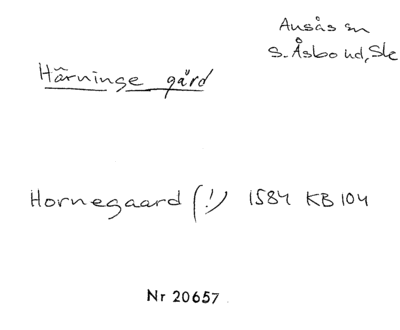 Ausås sn
S. Åsbo hd, Sk
Härninge gård
Hornegaard (!) 1584 KB 104
Nr 20657